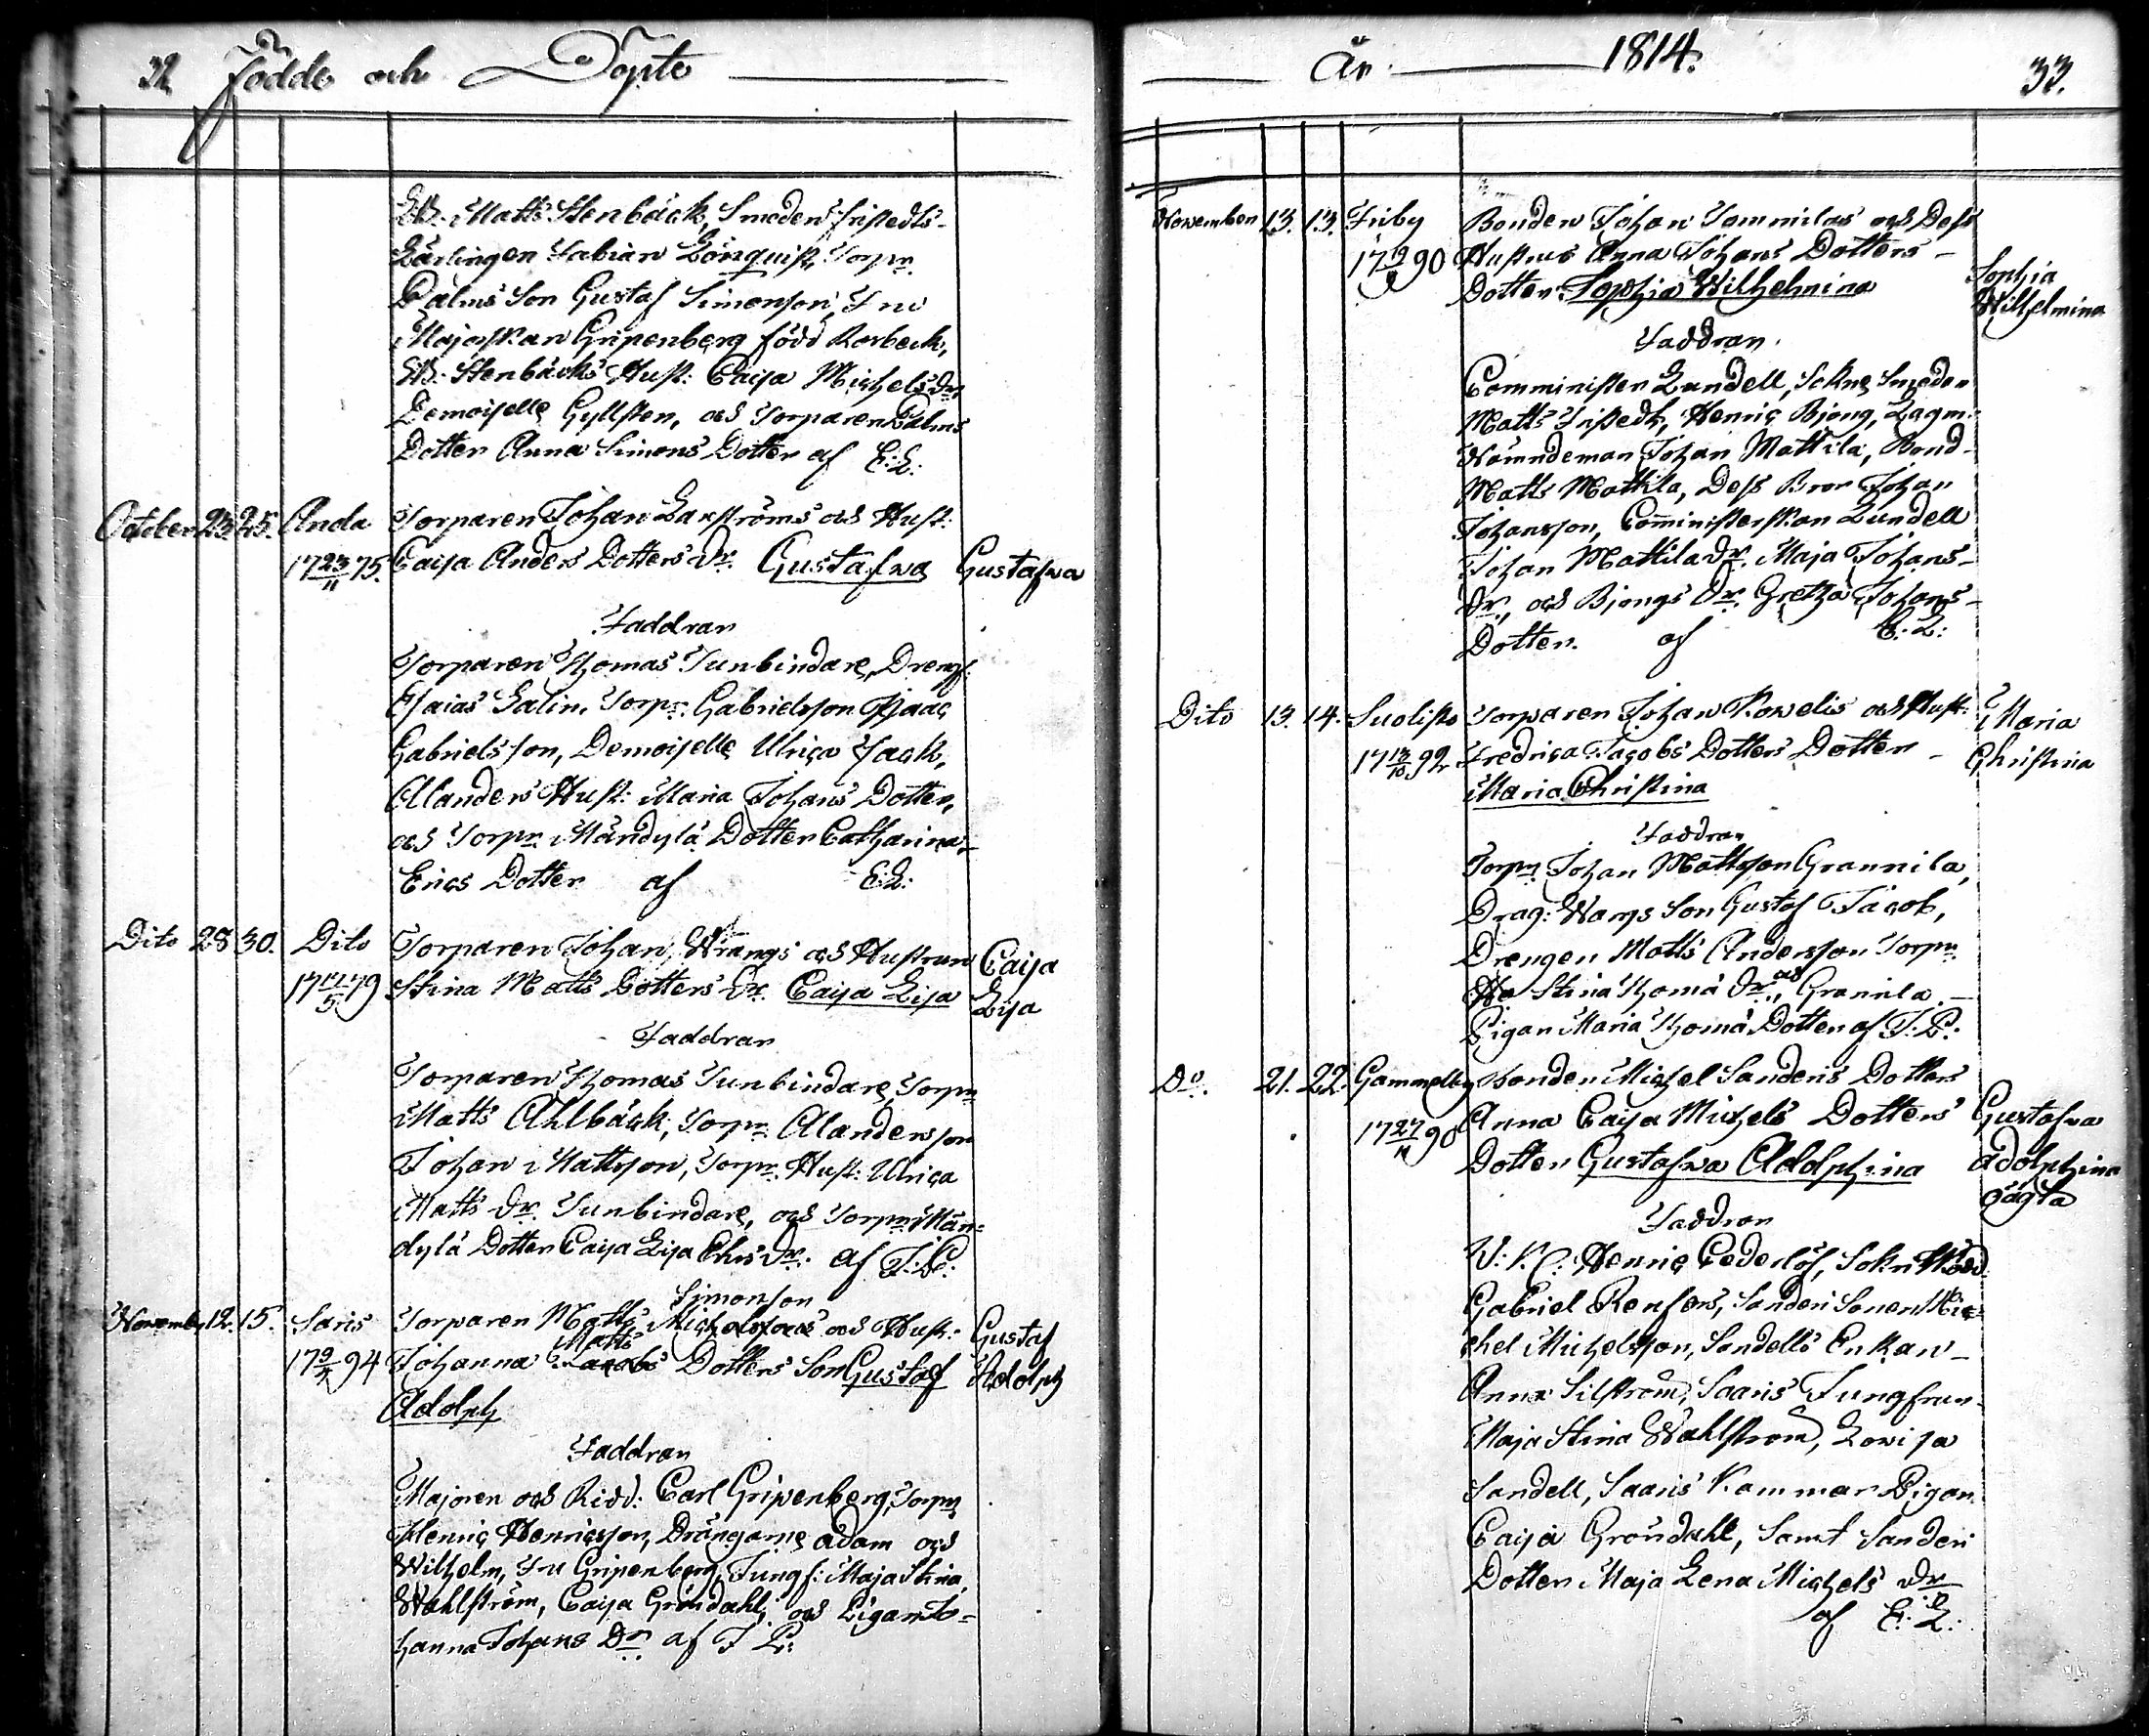 32 Födde och Döpte
Matts Stenbäck, Smeden Fristedts
Lärlingen Fabian Lönquist, Torpr
Palms Son Gustaf Simonson, Fru
Majorskan Gripenberg född
Stenbäcks Hust: Caisa Michelsdr,
Demoiselle Gyllsten, och Torparen Palms
Dotter Anna Simons Dotter af E:L:
October 23 25. Anda Torparen Johan Laxströms och Hust:
17 23/11 75. Caisa Anders Dotters Dr. Gustafwa Gustafwa
Faddrar
Torparen Thomas Tunbindare, Dreng:
Esaias Galin, Torpr. Gabrielsson Isaac
Gabrielsson, Demoiselle Ulrica Fack,
Alanders Hust: Maria Johans Dotter,
och Torpr Mändylä Dotter Catharina
Erics Dotter af E:L:
Dito 28 30. Dito Torparen Johan Wrangs och Hustrun Caisa
17 17/5 79 Stina Matts Dotters Dr. Caisa Lisa Lisa
Faddrar
Torparen Thomas Tunbindare, Torpr
Matts Ahlbäck, Torpr Alanderson
Johan Mattsson, Torpr. Hust: Ulrica
Matts Dr. Tunbindare, och Torpr: Män=
dylä Dotter Caisa Lisa Ehrs Dr: af
Simonson
November 12. 15. Saris Torparen Matts Michelssons och Hust: Gustaf
Matts
17 9/7 94 Johanna Jacobs Dotters Son Gustaf Adolph
Adolph
Faddrar
Majoren och Ridd: Carl Gripenberg, Torpr
Henric Henricsson, Drängarne Adam och
Wilhelm, Fru Gripenberg, Jungf: Maja Stina
Wahlström, Caisa Gröndahl, och Pigan Jo=
hanna Johans Dr af
År 1814. 33.
November 13. 13. Friby Bonden Johan Tommilas och Dess
17 19/9 90 Hustrus Anna Johans Dotters
Dotter Sophia Wilhelmina Sophia
Wilhelmina
Faddrar
Comminister Lundell, Sokne Smeden
Matts Fristedt, Henric Bjong, Lagm:
Nämndeman Johan Mattila, Bond
Matts Mattila, Dess Bror Johan
Johansson, Comministerskan Lundell
Johan Mattila Dr. Maja Johans
Dr., och Bjongs Dr. Gretha Johans
Dotter. af E:L:
Dito 13. 14. Suolisto Torparen Johan Kowelis och Hust: Maria
17 13/10 92 Fredrica Jacobs Dotters Dotter Christina
Maria Christina
Faddrar
Torpr. Johan Mattsson Grannila,
Drag: Wargs Son Gustaf Jacob,
Drengen Matts Andersson Torpr
Stina Thomä Dr., och Grannila
Pigan Maria Thomä Dotter af
Do. 21. 22. Gammelby Bonden Michel Sanderis Dotter
17 27/11 90 Anna Caisa Michels Dotters Gustafwa
Dotter Gustafwa Adolphina Adolphina
oägta
Faddrar
V: P: Henric Cederlöf,
Gabriel Renfors, Sanderi Sonen Mi=
chel Michelsson, Sandells Enkan
Anna Silström, Saaris Jungfrun
Maja Stina Wahlström, Lowisa
Sandell, Saaris Kammar Pigan
Caisa Gröndahl, Samt Sanderi
Dotter Maja Lena Michels Dr
af E:L: